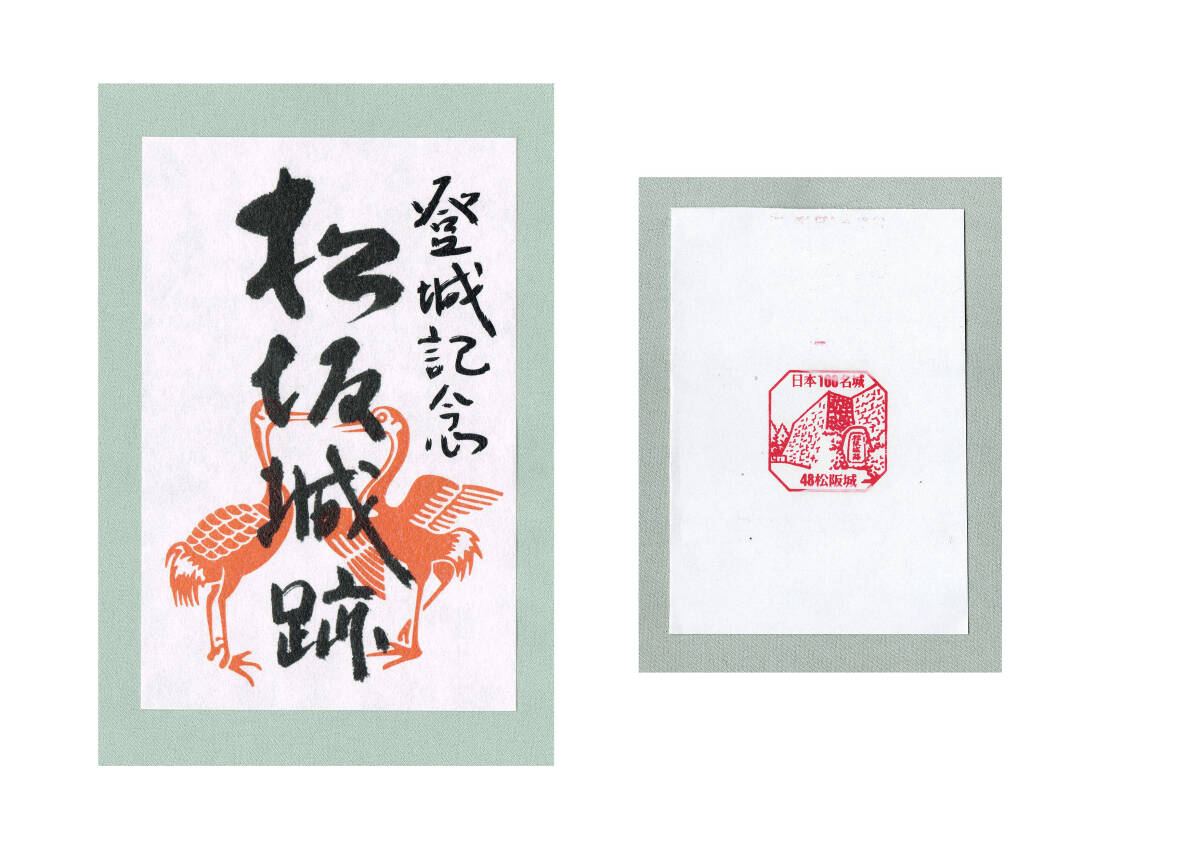 登城記念
松坂城跡
日本100名城
48松阪城